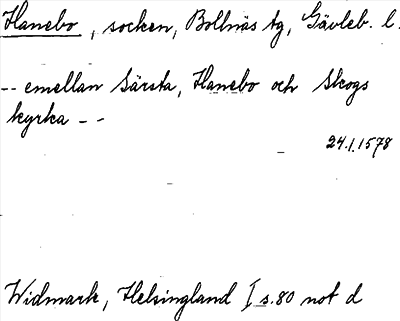 Hanebo, socken, Bollnäs tg, Gävleb. l.
-- emellan Särsta, Hanebo och Skogs
kyrka - -
24.1.1578
Widmark, Helsingland I s.80 not d